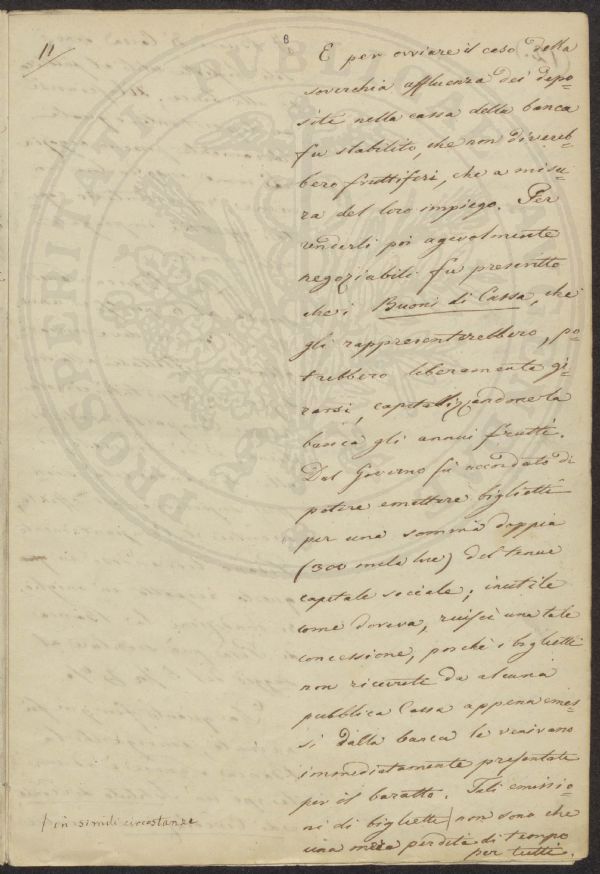 11
8
E per ovviare il caso della
soverchia affluenza dei depo=
siti nella cassa della banca
fu stabilito, che non divereb=
bero fruttiferi, che a misu=
ra del loro impiego. Per
renderli poi agevolmente
negoziabili fu prescritto
che i Buoni di Cassa, che
gli rappresenterebbero, po=
trebbero liberamente gi=
rarsi, capitalizzandone la
banca gli annui frutti.
Dal Governo fu accordato di
potere emettere biglietti
per una somma doppia
(300 mila lire) del tenue
capitale sociale; inutile
come doveva, riuscì una tale
concessione, poichè i biglietti
non ricevuti da alcuna
pubblica Cassa appena emes=
si dalla banca le venivano
immediatamente presentati
per il baratto. Tali emissio=
ni di biglietti / non sono che
una mera perdita di tempo
per tutti.
/ in simili circostanze
PROSPERITATI PUBLICAE